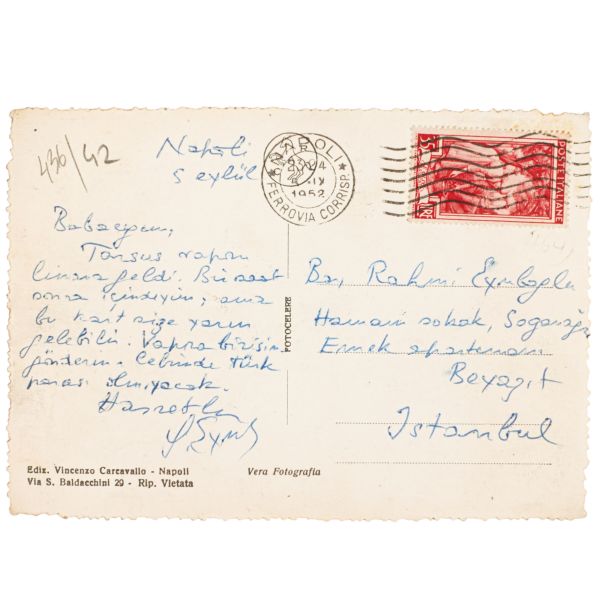 436/42
Napoli
5 eylül
NAPOLI
1952
FERROVIA CORRISP.
35
LIRE
POSTE ITALIANE
Babacığım,
Tarsus vapuru
limana geldi. Bir saat
sonra içindeyim; ama
bu kart size yarın
gelebilir. Vapura birisini
gönderin. Cebimde türk
parası olmıyacak.
Hasretle
FOTOCELERE
Bay Rahmi Eyuboğlu
Hamam sokak, Soğanağa
Emek apartmanı
Beyazıt
Istanbul
Ediz. Vincenzo Carcavallo - Napoli
Via S. Baldacchini 29 - Rip. Vietata
Vera Fotografia